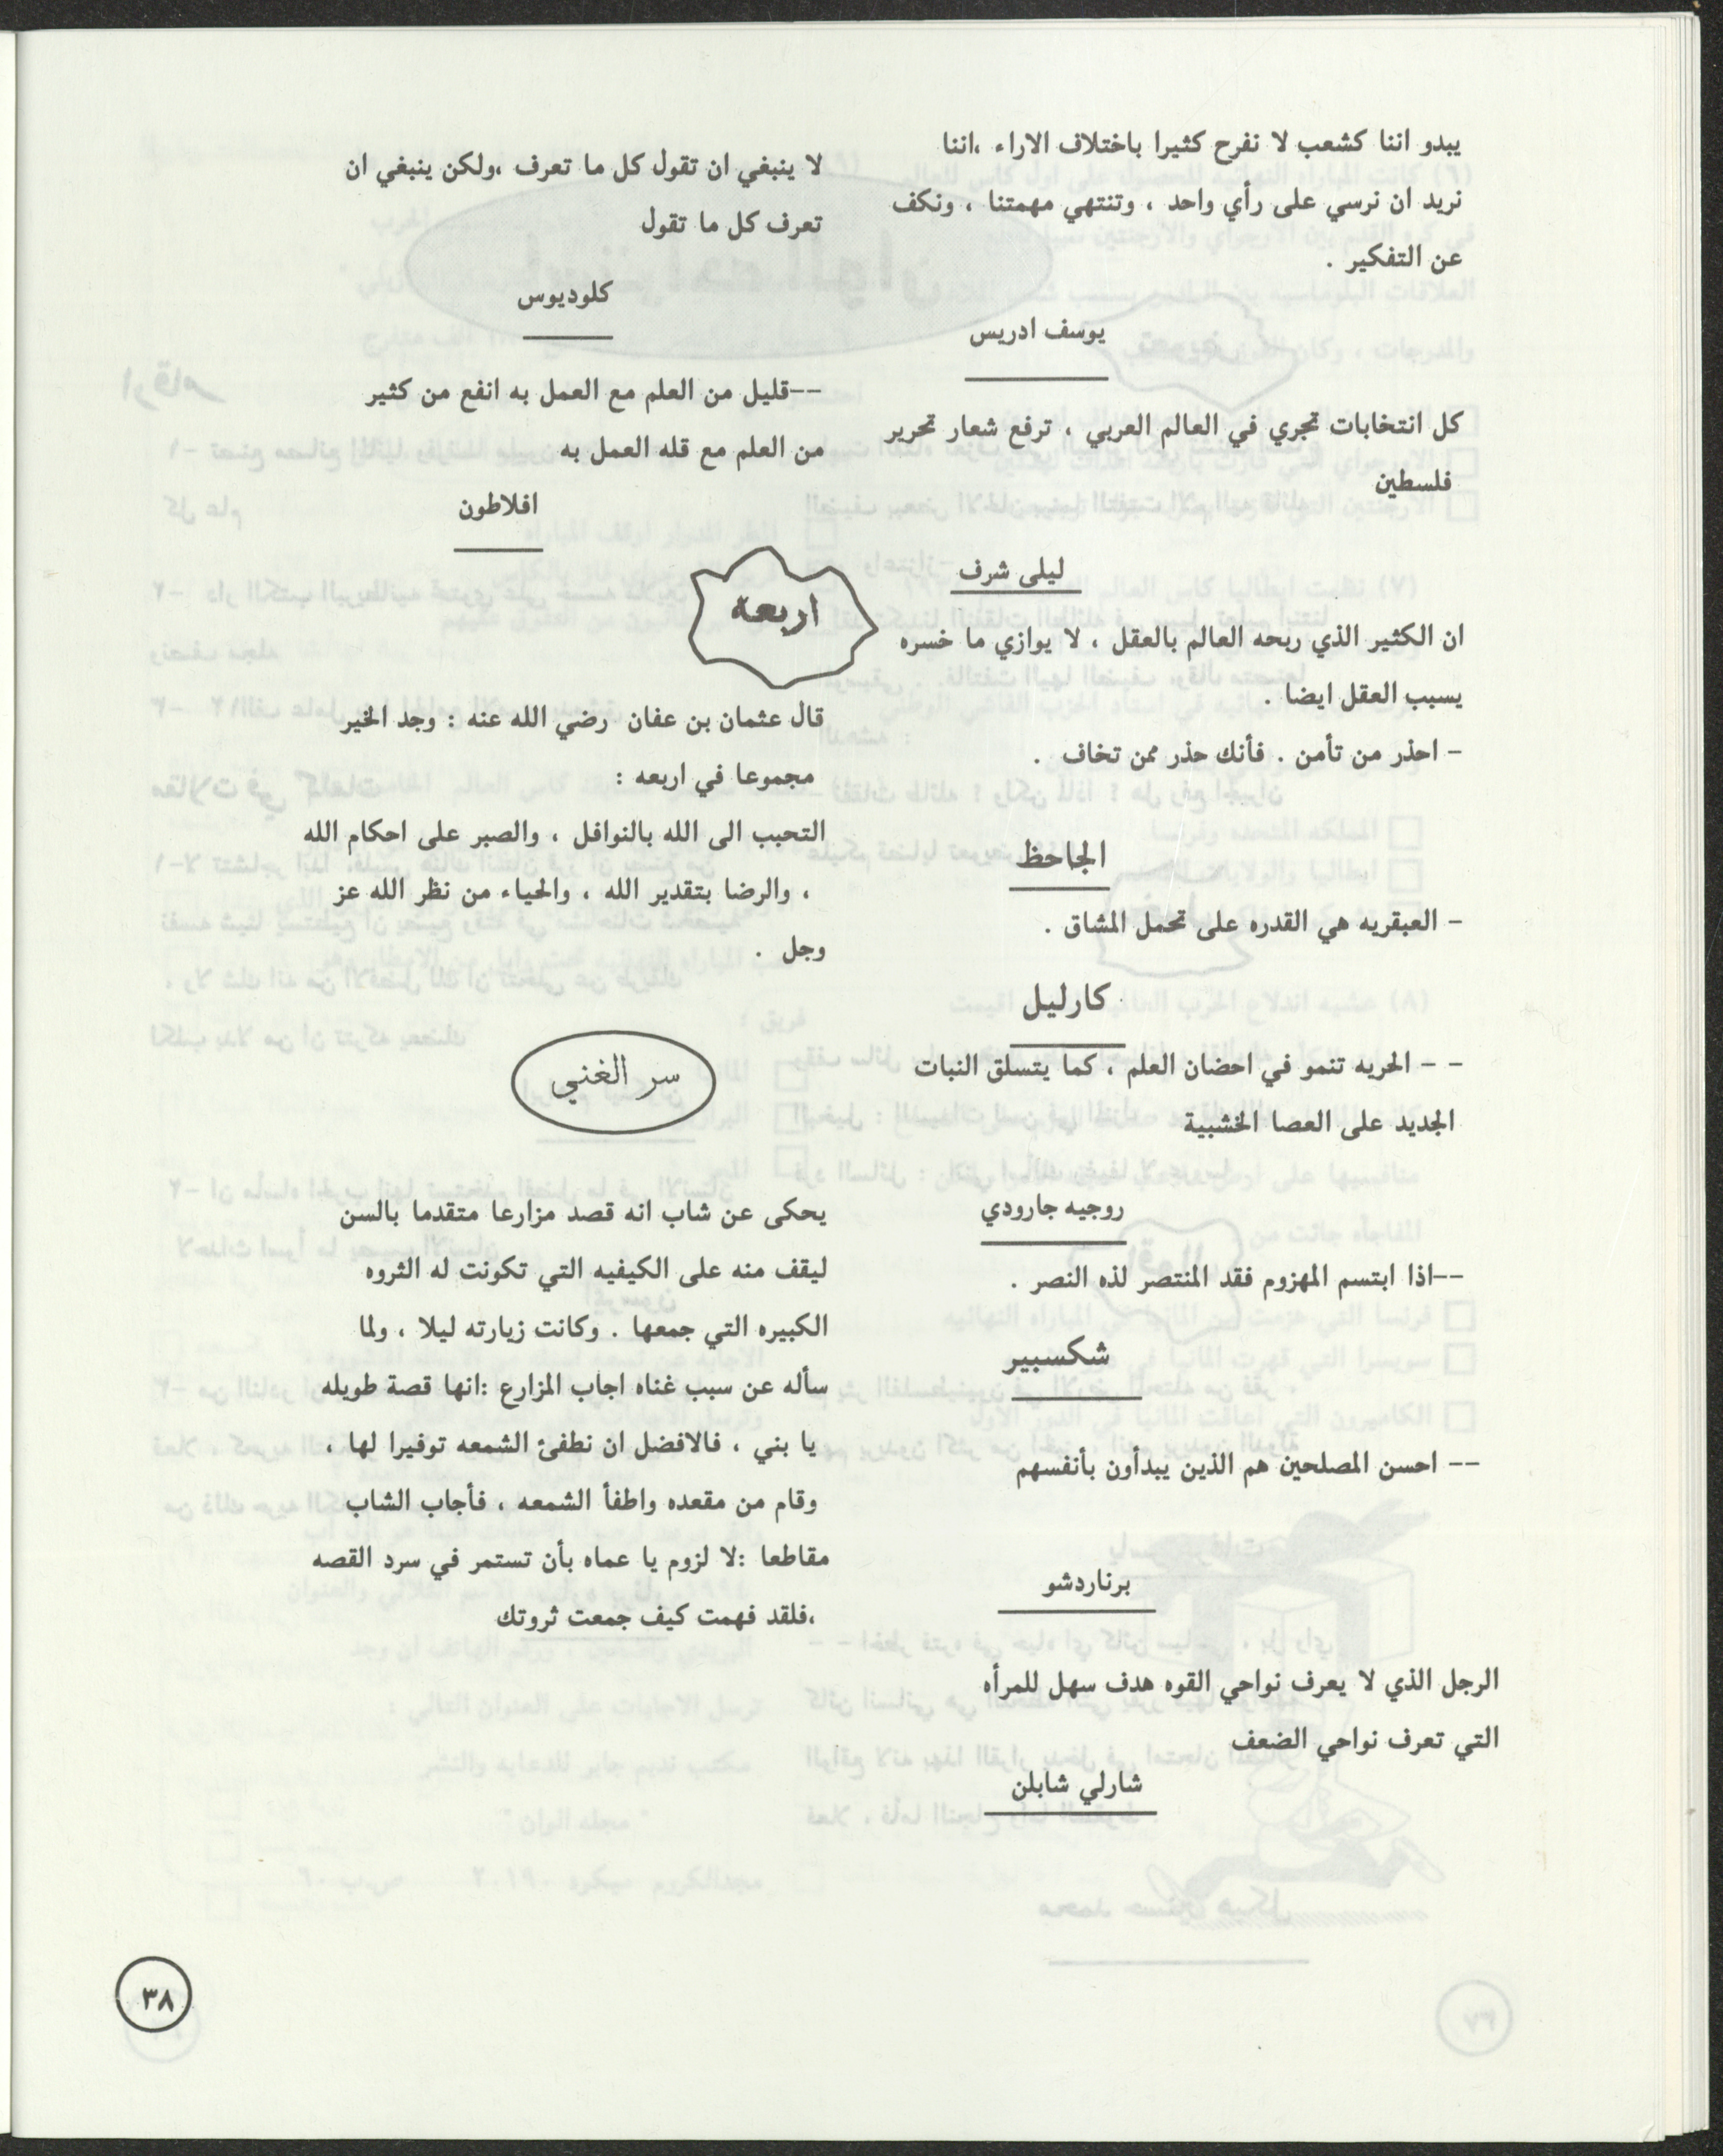 يبدو اننا كشعب لا نفرح كثيرا باختلاف الاراء ،اننا
نريد ان نرسي على رأي واحد ، وتنتهي مهمتنا ، ونكف
عن التفكير .
يوسف ادريس
كل انتخابات تجري في العالم العربي ، ترفع شعار تحرير
فلسطين
ليلى شرف
ان الكثير الذي ربحه العالم بالعقل ، لا يوازي ما خسره
يسبب العقل ايضا .
- احذر من تأمن . فأنك حذر ممن تخاف .
الجاحظ
- العبقريه هي القدره على تحمل المشاق .
كارليل
- - الحريه تنمو في احضان العلم ، كما يتسلق النبات
الجديد على العصا الخشبية
روجيه جارودي
--اذا ابتسم المهزوم فقد المنتصر لذه النصر .
شكسبير
-- احسن المصلحين هم الذين يبدأون بأنفسهم
برناردشو
الرجل الذي لا يعرف نواحي القوه هدف سهل للمرأه
التي تعرف نواحي الضعف
شارلي شابلن
لا ينبغي ان تقول كل ما تعرف ،ولكن ينبغي ان
تعرف كل ما تقول
كلوديوس
--قليل من العلم مع العمل به انفع من كثير
من العلم مع قله العمل به
افلاطون
اربعه
قال عثمان بن عفان رضي الله عنه : وجد الخير
مجموعا في اربعه :
التحبب الى الله بالنوافل ، والصبر على احكام الله
، والرضا بتقدير الله ، والحياء من نظر الله عز
وجل .
سر الغني
يحكى عن شاب انه قصد مزارعا متقدما بالسن
ليقف منه على الكيفيه التي تكونت له الثروه
الكبيره التي جمعها . وكانت زيارته ليلا ، ولما
سأله عن سبب غناه اجاب المزارع :انها قصة طويله
يا بني ، فالافضل ان نطفئ الشمعه توفيرا لها ،
وقام من مقعده واطفأ الشمعه ، فأجاب الشاب
مقاطعا :لا لزوم يا عماه بأن تستمر في سرد القصه
،فلقد فهمت كيف جمعت ثروتك
٣٨